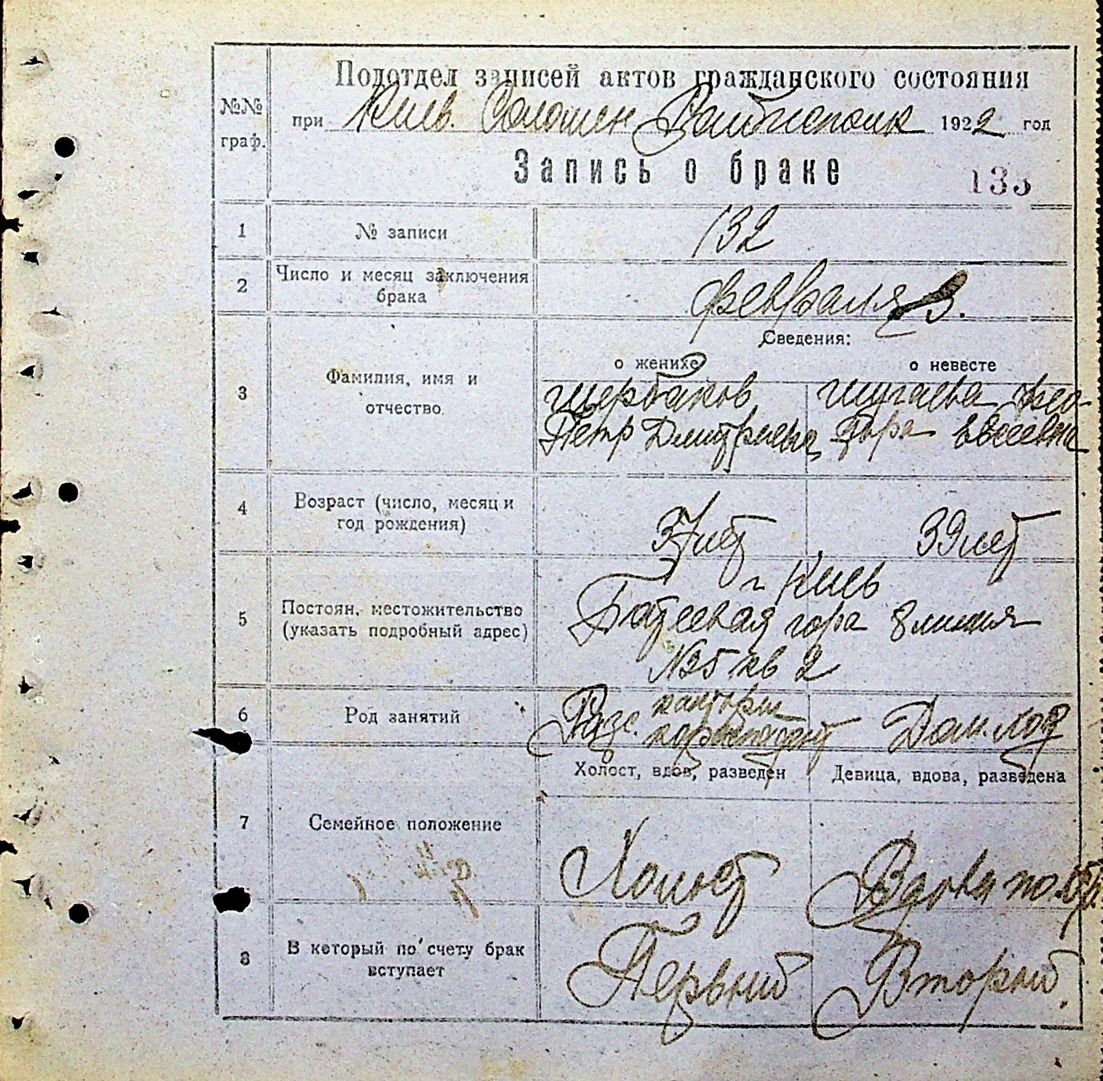 Подотдел записей актов гражданского состояния
№№ граф.
при Киев. Соломен Райисполк 1922 год
Запись о браке 133
1 № записи 132
2 Число и месяц заключения брака февраля 3.
Сведения:
о женихе о невесте
3 Фамилия, имя и отчество
Щербаков Шугаева Фео-
Петр Дмитриевич дора Евсеевна
4 Возраст (число, месяц и год рождения) 37 лет 39 лет
г. Киев
5 Постоян. местожительство (указать подробный адрес) Батеевая гора 8 линия
№ 35 кв 2
6 Род занятий конторы Дом. хоз
Холост, вдов, разведен Девица, вдова, разведена
7 Семейное положение Холост Вдова по
8 В который по счету брак вступает Первый Второй.